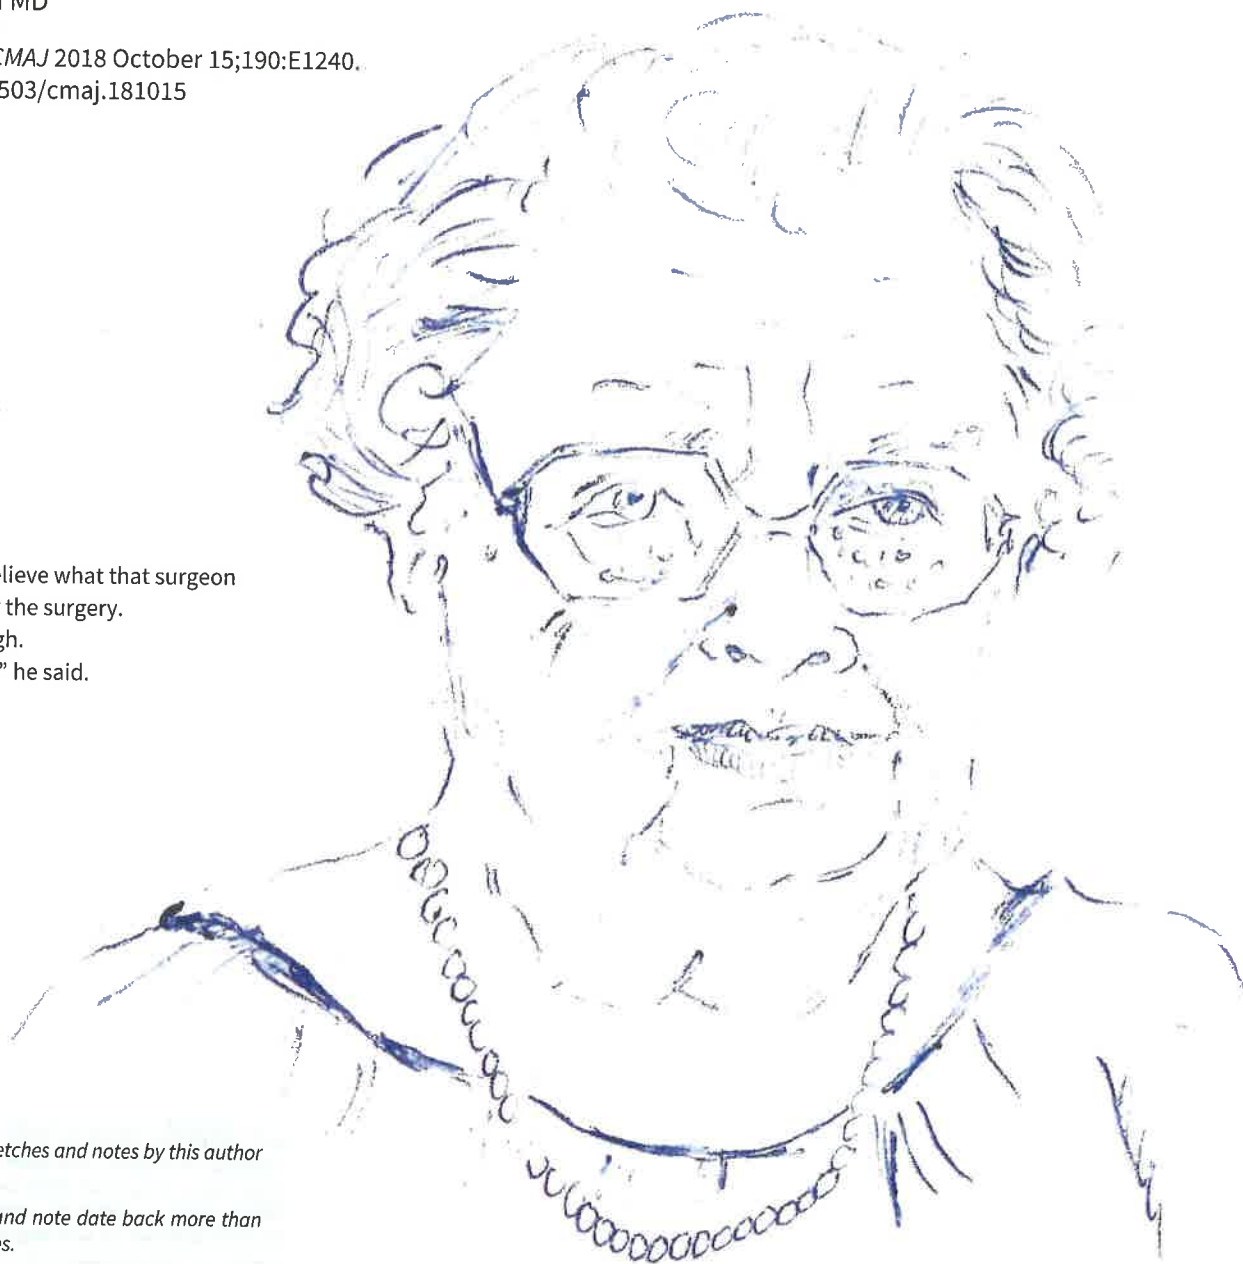 MD
CMAJ 2018 October 15;190:E1240.
503/cmaj.181015
lieve what that surgeon
the surgery.
gh.
” he said.
etches and notes by this author
and note date back more than
s.